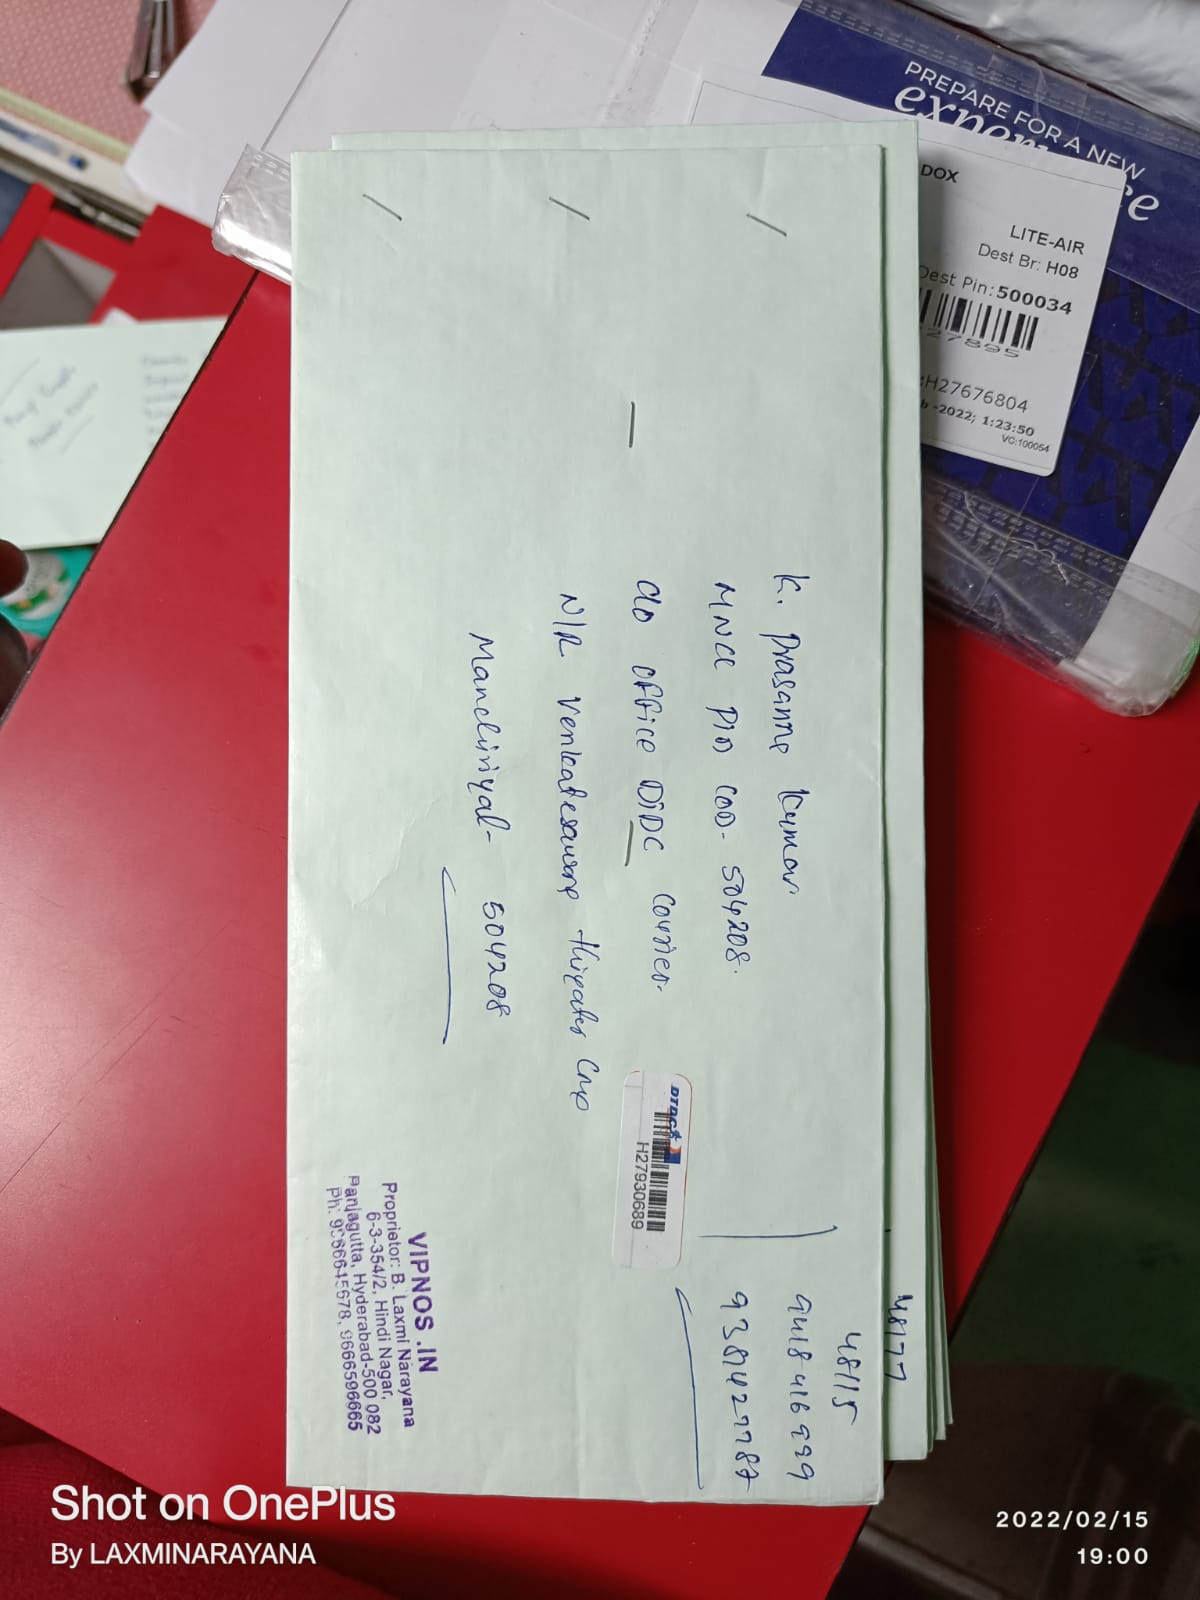 PREPARE FOR A NEW
DOX
LITE-AIR
Dest Br: H08
Dest Pin:500034
27895
:H27676804
b -2022; 1:23:50
VC:100054
K. Prasanna Kumar
MNCL PIN COD- 504208.
C/o office DTDC Courier.
N/R Venkateswara thiyater Cmp
Mancliriyal- 504208
DTDC
H27930689
48177
48115
9418416999
9381427787
VIPNOS .IN
Proprietor: B. Laxmi Narayana
6-3-354/2, Hindi Nagar,
Panjagutta, Hyderabad-500 082
Ph: 9666645678, 9666596665
Shot on OnePlus
By LAXMINARAYANA
2022/02/15
19:00